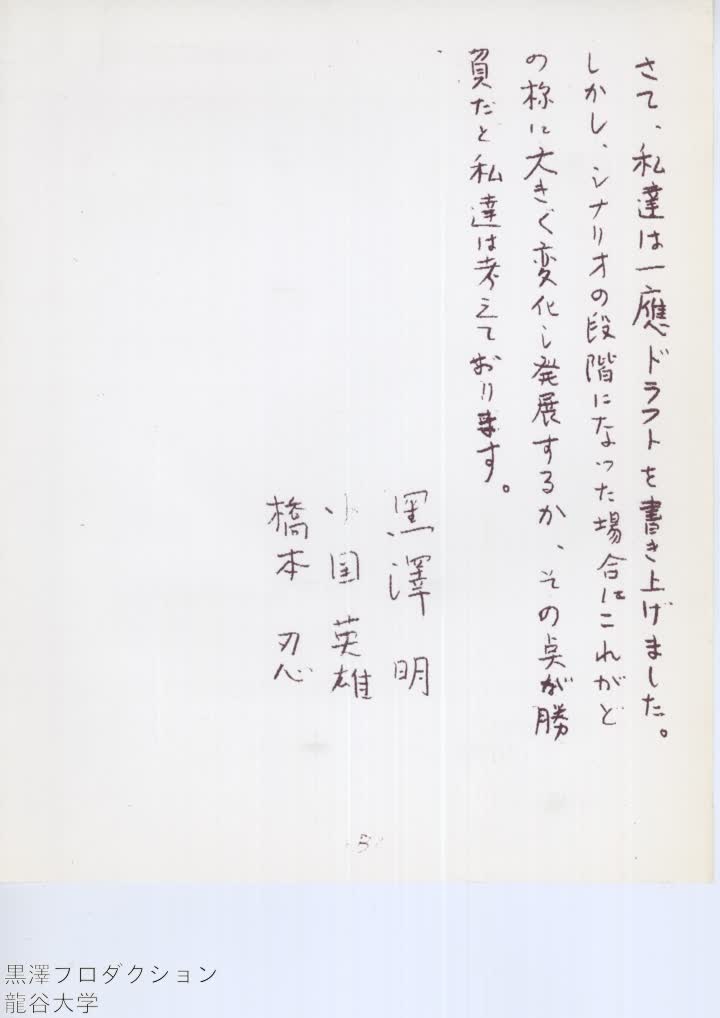 さて、私達は一應ドラフトを書き上げました。
しかし、シナリオの段階になった場合にこれがど
の様に大きく変化し発展するか、その点が勝
負だと私達は考えております。
黒澤 明
小国 英雄
橋本 忍
黒澤フロダクション
龍谷大学